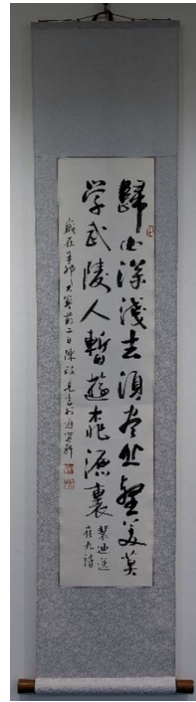 歸山深淺去須盡丘壑美莫
学武陵人暫遊桃源裏
裴迪送
崔九詩
歲在辛卯大寒前二日陳政